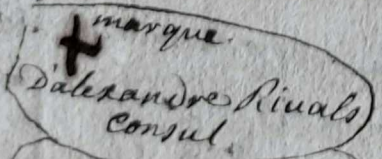 marque.
d'alexandre Riuals
Consul.